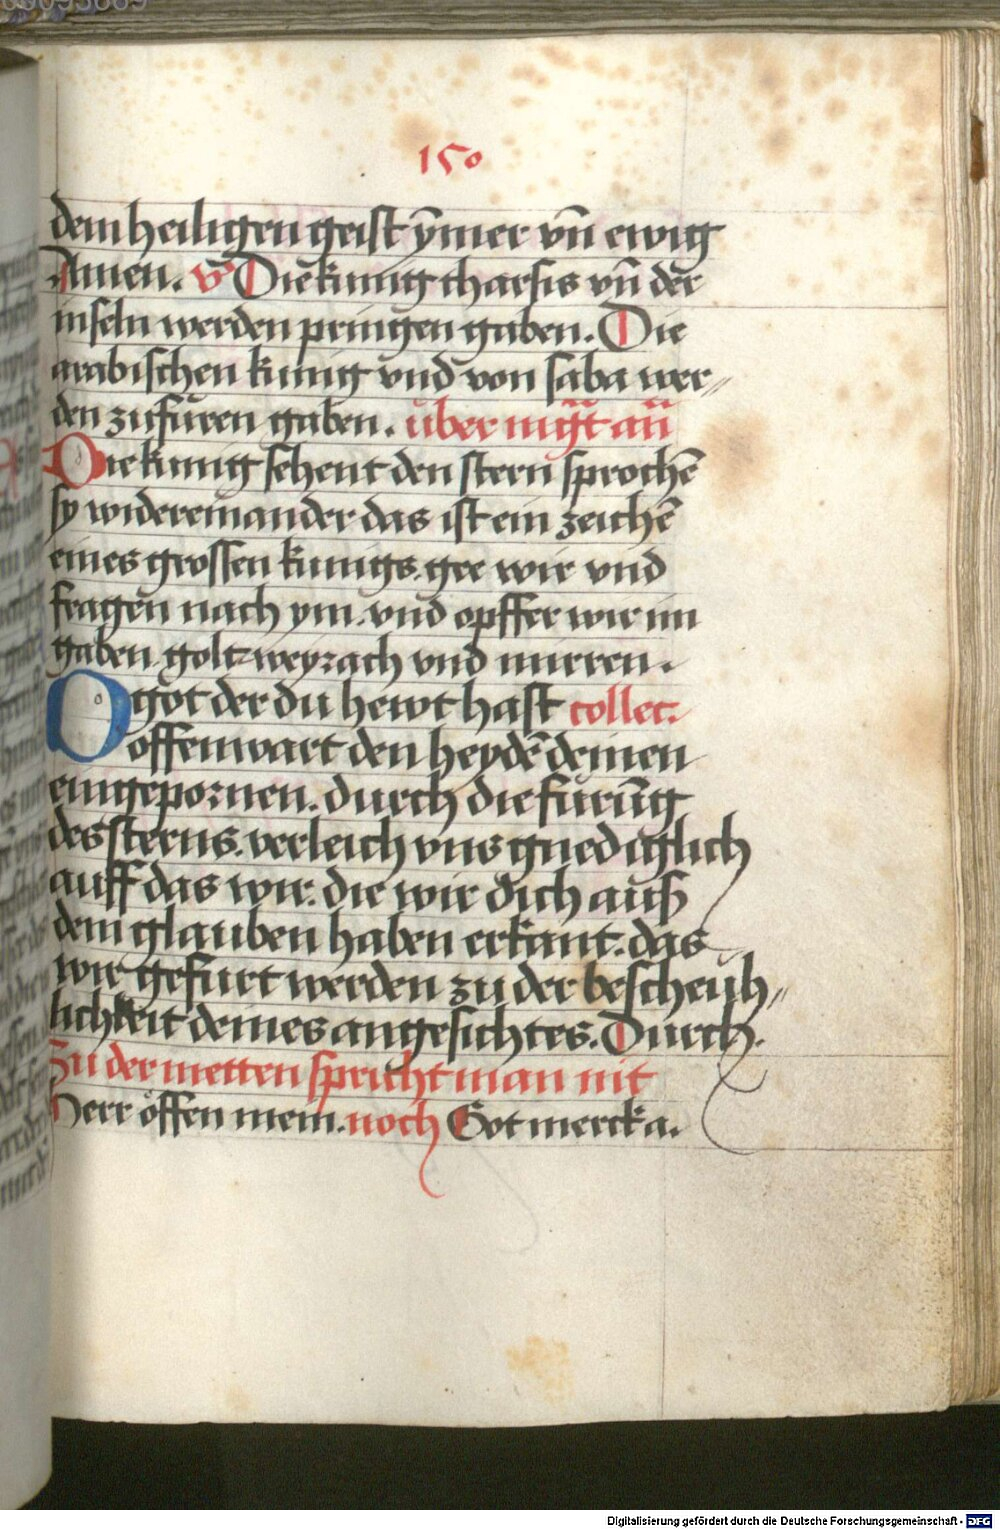 150
dem heiligen geist ÿmer vn̄ ewig
Amen. v̄ Die kunig tharsis vn̄ der
inseln werden pringen gaben. Die
arabischen kunig vnd von saba wer„
den zufuren gaben. über mg̃t añ
Die kunig sehent den stern sprochē
sy widereinander das ist ein zeichē
eines grossen kunigs. gee wir vnd
fragen nach ym. vnd opffer wir im
gaben golt weyrach vnd mirren.
O got der du hewt hast collect.
offenwart den heydē deinen
eingepornen. durch die furūg
des sterns. verleich vns gnediglich
auff das wir. die wir dich auß
dem glauben haben erkant. das
wir gefurt werden zu der bescheuh„
lichkeit deines angesichtes. Durch.
Zu der metten spricht man nit
Herr öffen mein. noch Got merck a.
Digitalisierung gefördert durch die Deutsche Forschungsgemeinschaft - DFG